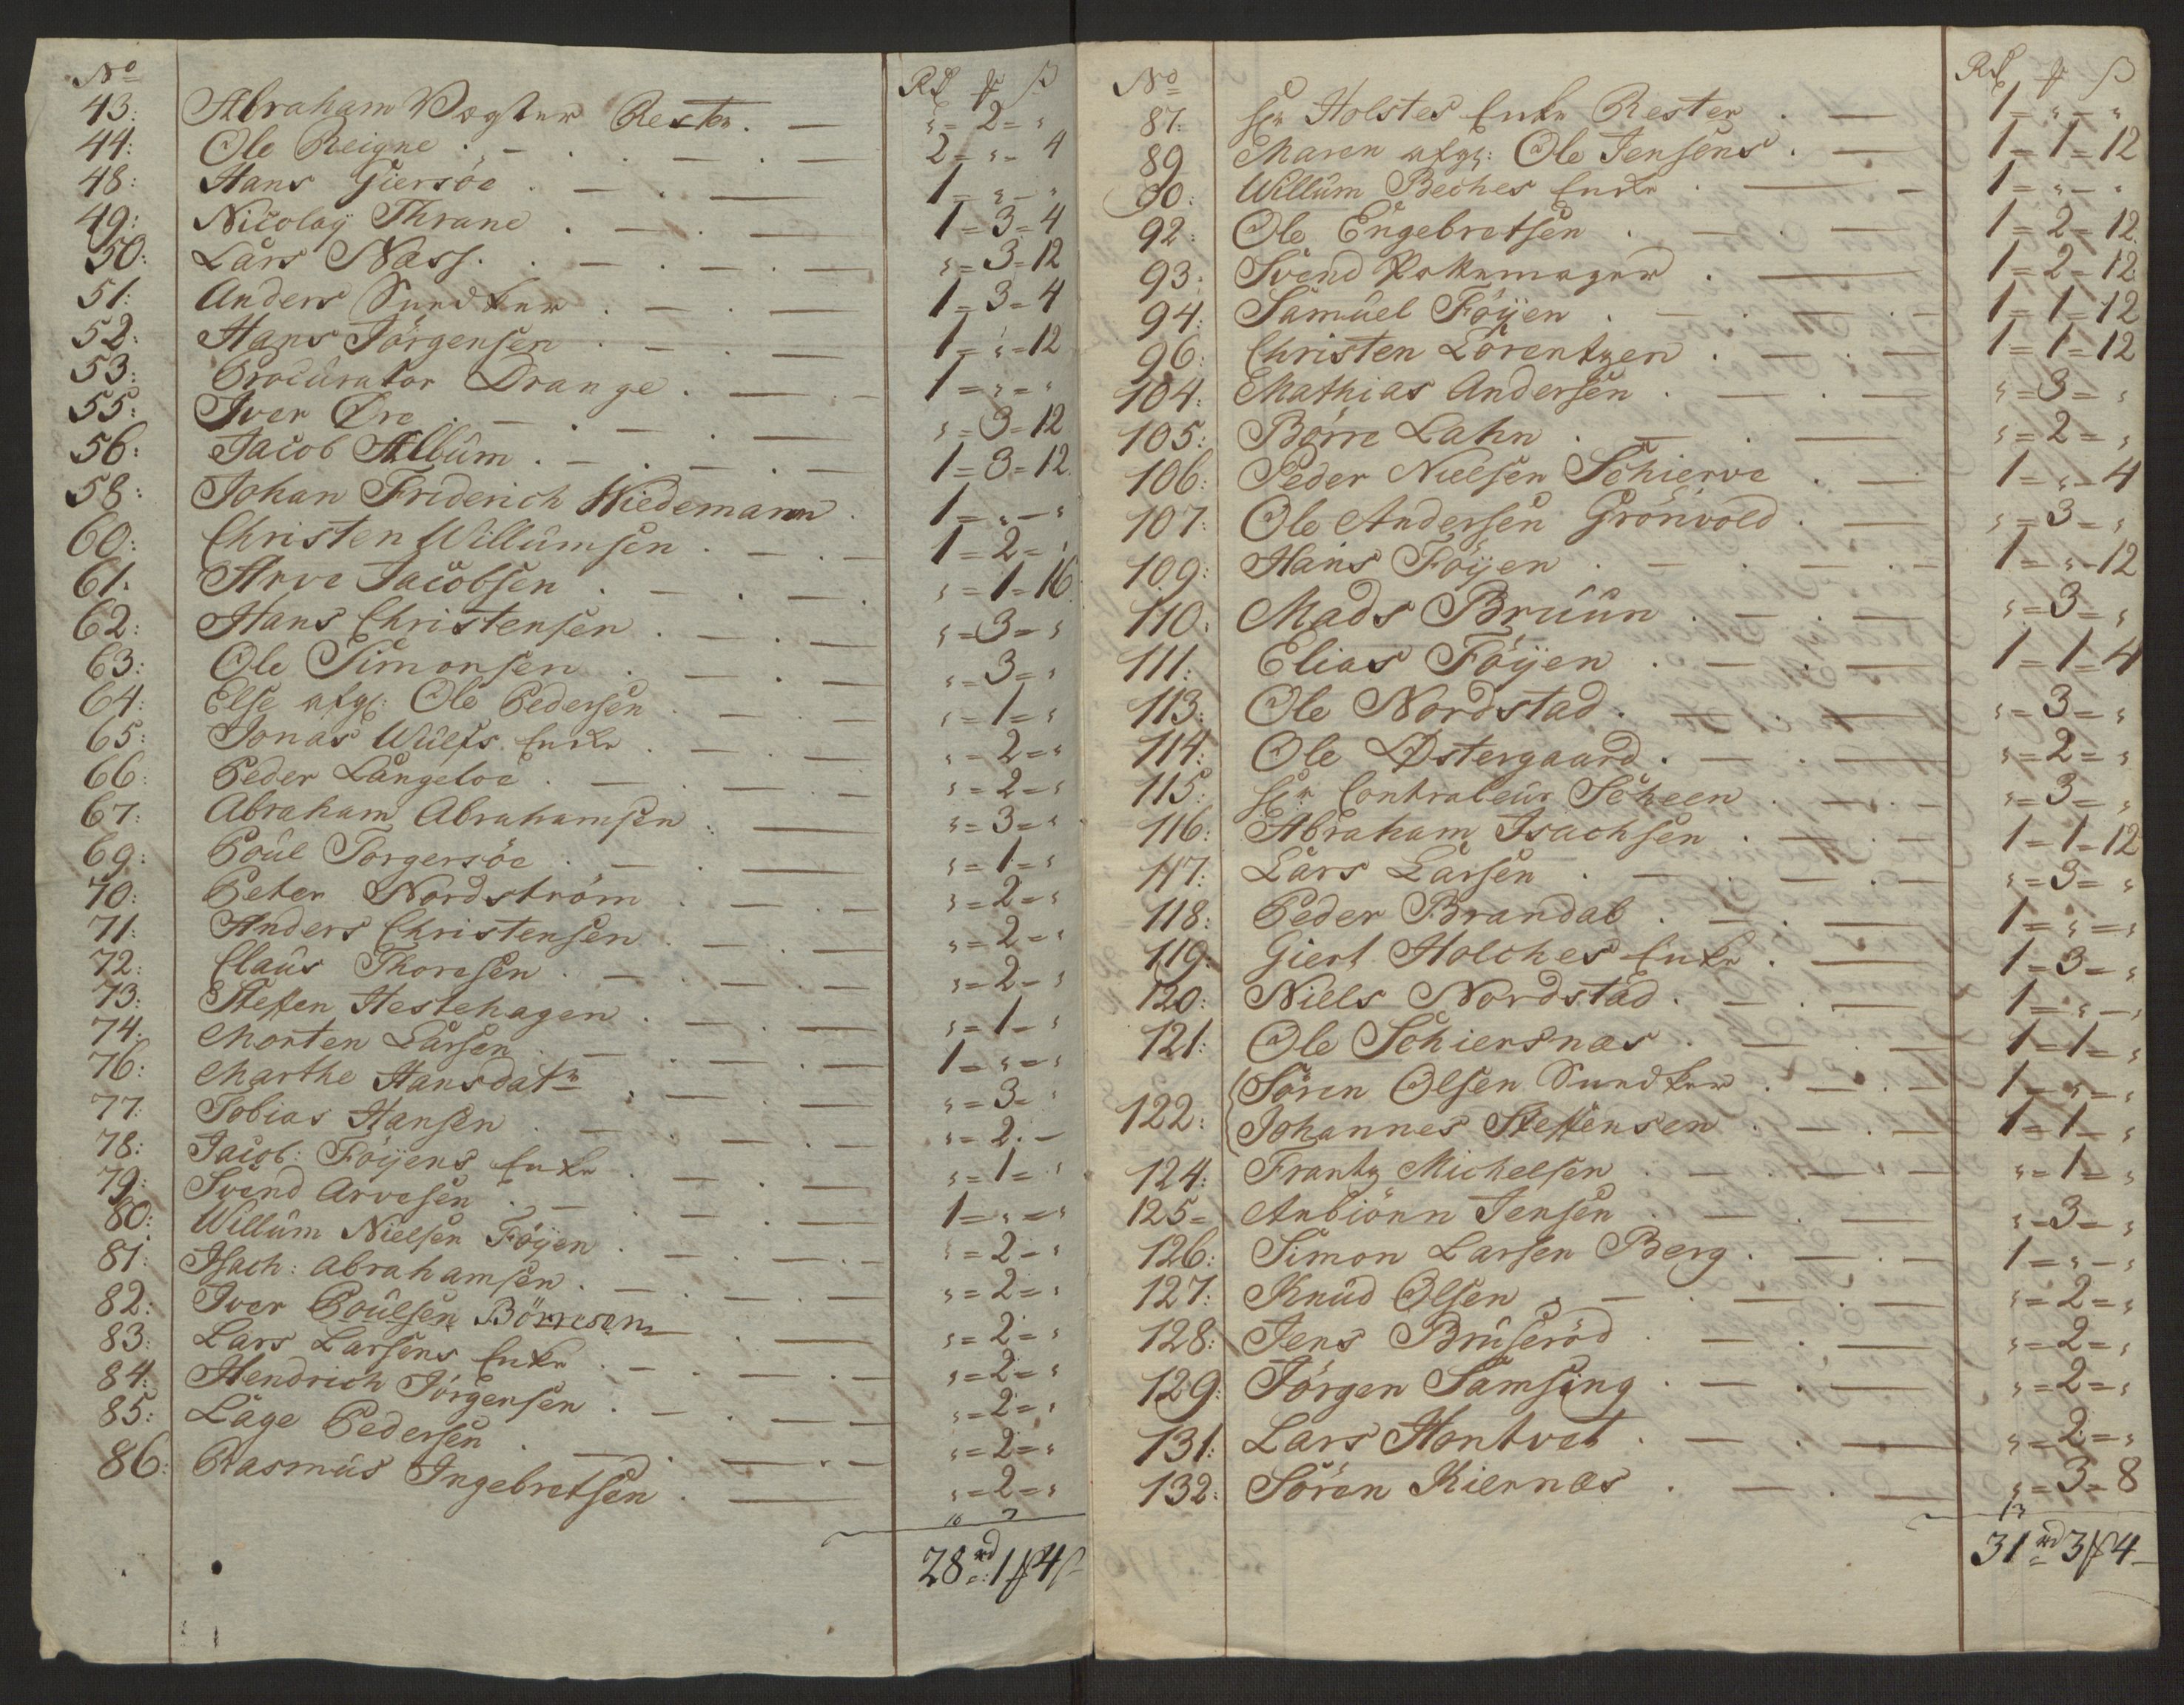 No Rd ƒ ß
43: Abraham Vægter Rester. — „=2=„
44: Ole Reigne 2=„=4
48: Hans Giersöe 1=„=„
49: Nicolaÿ Thrane 1=3=4
50: Lars Næss. „=3=12
51: Anders Sundker 1=3=4
52: Hans Jörgensen 1=„=12
53: Procurator Drange 1=„=„
55: Iver Øre „=3=12
56: Jacob Album 1=3=12
58: Johan Friderich Wiedemann 1=„=„
60: Christen Willumsen 1=2=„
61: Arve Jacobsen „=1=16
62: Hans Christensen „=3=„
63: Ole Simonsen „=3=„
64: Else afgl: Ole Pedersen „=1=„
65: Jonas Wulfs Enke „=2=„
66: Peder Langeloe „=2=„
67: Abraham Abrahamsen „=3=„
69: Poul Torgersöe „=1=„
70: Peter Nordström „=2=„
71: Anders Christensen „=2=„
72: Claus Thoresen „=2=„
73: Steffen Hestehagen „=1=„
74: Morten Larsen 1=„=„
76: Marthe Hansdatr „=3=„
77: Tobias Hansen „=2.—
78: Jacob: Föyens Enke „=1=„
79: Svend Arvesen 1=„=„
80: Willum Nielsen Föyen „=2=„
81: Isach: Abrahamsen „=2=„
82: Iver Poulsen Börresen „=2=„
83: Lars Larsens Enke „=2=„
84: Hendrich Jörgensen „=2=„
85: Lage Pedersen „=2=„
86: Rasmus Ingebretsen „=2=„
28rd:1ƒ4ß
No Rd ƒ ß
87: Hr Holstes Enke Rester 1=„=„
89 Maren afgl: Ole Jensens 1=1=12
90: Willum Beches Enke 1=„=„
92: Ole Engebretsen 1=2=12
93: Svend Pottemager 1=2=12
94: Samuel Föyen 1=1=12
96: Christen Lorentzen 1=1=12
104: Mathias Andersen „=3=„
105: Börre Lahn „=2=„
106: Peder Nielsen Schierve 1=„=4
107: Ole Andersen Grönvold „=3=„
109: Hans Föyen 1=„=12
110: Mads Bruun „=3=„
111: Elias Föyen 1=1=4
113: Ole Nordstad „=3=„
114: Ole Østergaard „=2=„
115: Hr Contraleur Scheen „=3=„
116: Abraham Isachsen 1=1=12
117: Lars Larsen „=3=„
118: Peder Brandal 1=„=„
119: Giert Holches Enke 1=3=„
120: Niels Nordstad 1=„=„
121: Ole Schiersnæs 1=1=„
122: Sören Olsen Sundker 1=„=„
Johannes Steffensen 1=1=„
124: Frantz Michelsen „=1=„
125= Anbiönn Jensen „=3=„
126: Simon Larsen Berg 1=„=„
127: Knud Olsen „=2=„
128: Jens Bruseröd „=2=„
129: Jörgen Samsing „=2=„
131: Lars Hontvet „=2=„
132: Sören Kiernæs „=3=8
13
31rd3ƒ4